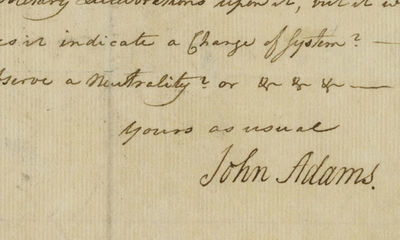 upon it, but it
it indicate a Change of System? —
a Neutrality? or & & & —
Yours as usual
John Adams.